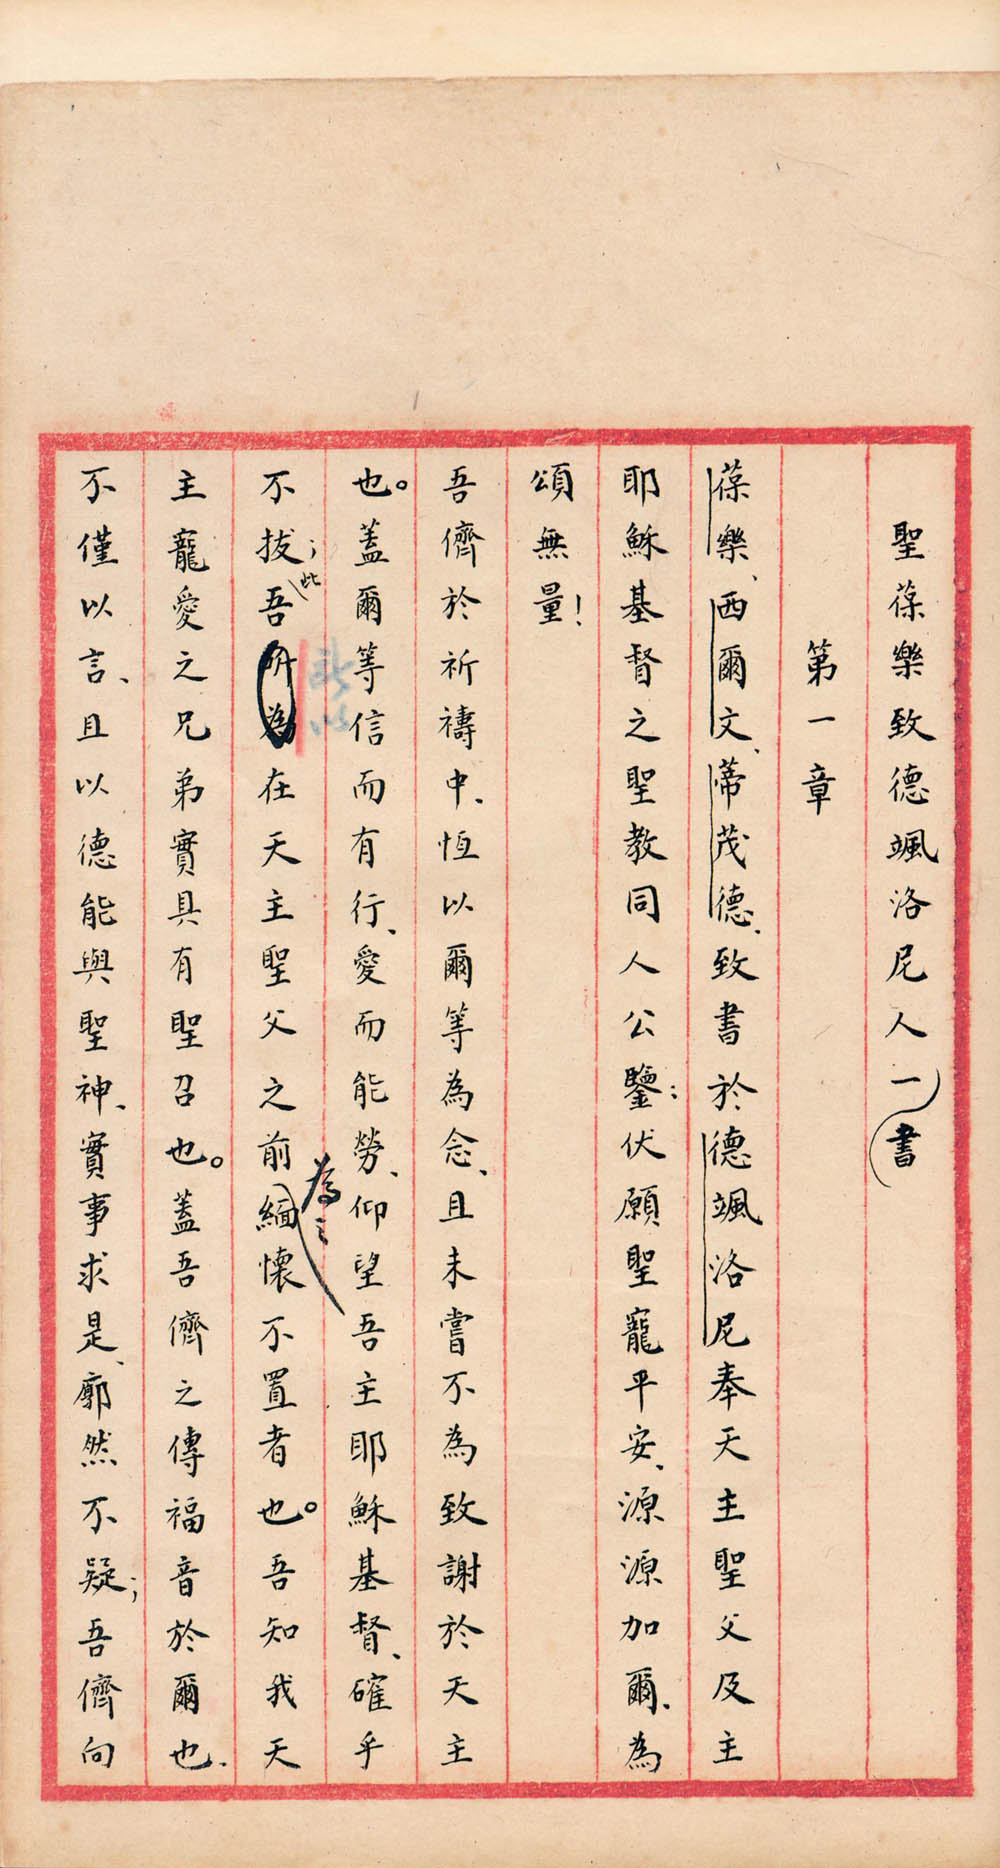 聖葆樂致德颯洛尼人一書
第一章
葆樂、西爾文、蒂茂德、致書於德颯洛尼奉天主聖父及主
耶穌基督之聖教同人公鑒:伏願聖寵平安、源源加爾、為
頌無量!
吾儕於祈禱中、恆以爾等為念、且未嘗不為致謝於天主
也。蓋爾等信而有行、愛而能勞、仰望吾主耶穌基督、確乎
不拔;此吾所為在天主聖父之前為之緬懷不置者也。吾知我天
所以
主寵愛之兄弟實具有聖召也。蓋吾儕之傳福音於爾也.
不僅以言、且以德能與聖神、實事求是、廓然不疑;吾儕向